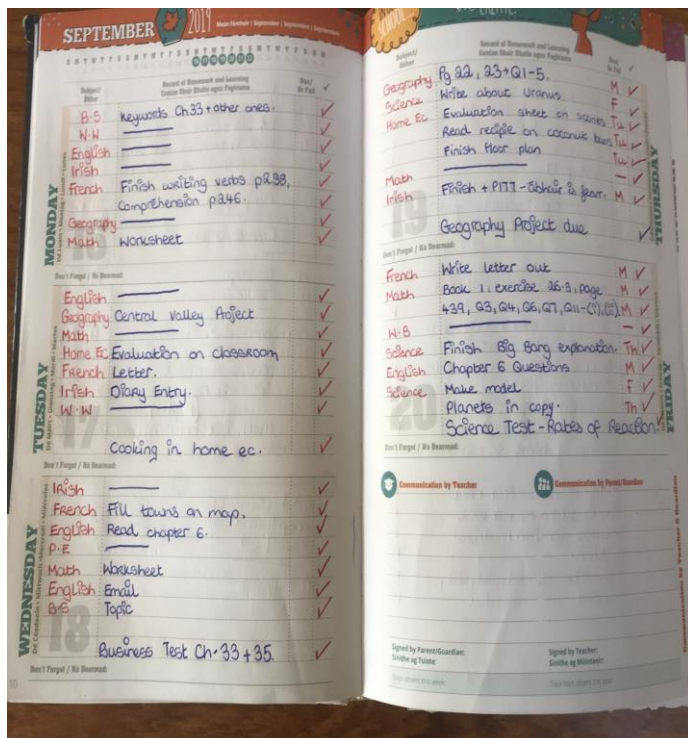 SEPTEMBER 2019
Meán Fómhair | September | Septembre | September
Subject/ Ábhar
Record of Homework and Learning
Due/
B.S Keywords Ch33 + other ones. ✓
W.W ✓
English ✓
Irish ✓
French Finish writing verbs p238, ✓
Comprehension p246. ✓
Geography ✓
Math Worksheet ✓
MONDAY
16
Don't Forget / Ná Dearmad:
English ✓
Geography Central Valley Project ✓
Math ✓
Home Ec Evaluation on classroom ✓
French Letter. ✓
Irish Diary Entry. ✓
W.W ✓
Cooking in home ec. ✓
TUESDAY
17
Don't Forget / Ná Dearmad:
Irish ✓
French Fill towns on map. ✓
English Read chapter 6. ✓
P.E ✓
Math Worksheet ✓
English Email ✓
B.S Topic ✓
Business Test Ch. 33 + 35. ✓
WEDNESDAY
18
Don't Forget / Ná Dearmad:
10
SCHOOL
Subject/ Ábhar
Record of Homework and Learning
Due/
Geography Pg 22, 23 + Q1-5. M ✓
Science Write about Uranus. F ✓
Home Ec Evaluation sheet on scones Tu ✓
Read recipie on coconut buns Tu ✓
Finish floor plan Tu ✓
Math - ✓
Irish Finish + P177 - ábhair is fearr. M ✓
Geography Project due ✓
THURSDAY
19
Don't Forget / Ná Dearmad:
French Write letter out M ✓
Math Book 1, exercise 26.3, page M ✓
439, Q3, Q4, Q6, Q7, Q11-(i),(ii). M ✓
W.B - ✓
Science Finish Big Bang explanation. Th ✓
English Chapter 6 Questions M ✓
Science Make model F ✓
Planets in copy. Th ✓
Science Test - Rates of Reaction.
FRIDAY
20
Don't Forget / Ná Dearmad:
Communication by Teacher
Communication by Parent/Guardian
Communication by Teacher & Guardian
Signed by Parent/Guardian:
Sínithe ag Tuiste:
Signed by Teacher:
Sínithe ag Múinteoir:
Days absent this week: